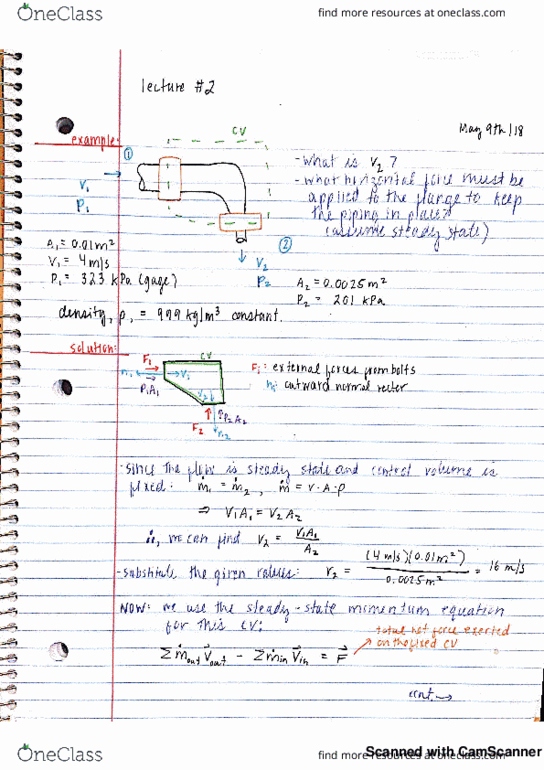 OneClass
find more resources at oneclass.com
lecture #2
May 9th/18
example:
CV
①
V₁
P₁
②
V₂
P₂
- What is V₂?
- what horizontal force must be
applied to the flange to keep
the piping in place?
(assume steady state)
A₁ = 0.01 m²
V₁ = 4 m/s
P₁ = 323 kPa (gage)
A₂ = 0.0025 m²
P₂ = 201 kPa
density, ρ, = 999 kg/m³ constant.
solution:
CV
F₁
n₁
V₁
P₁A₁
V₂
F₂
P₂A₂
n₂
Fᵢ: external forces from bolts
nᵢ: outward normal vector
- since the flow is steady state and control volume is
fixed: ṁ₁ = ṁ₂, ṁ = V·A·ρ
⇒ V₁A₁ = V₂A₂
∴, we can find V₂ = V₁A₁ / A₂
- substitute the given values: V₂ = (4 m/s)(0.01 m²) / 0.0025 m² = 16 m/s
NOW: we use the steady-state momentum equation
for this CV:
total net force exerted
on the fixed CV
Σ ṁout V⃗out - Σ ṁin V⃗in = F⃗
cont. →
Scanned with CamScanner
OneClass
find more resources at oneclass.com